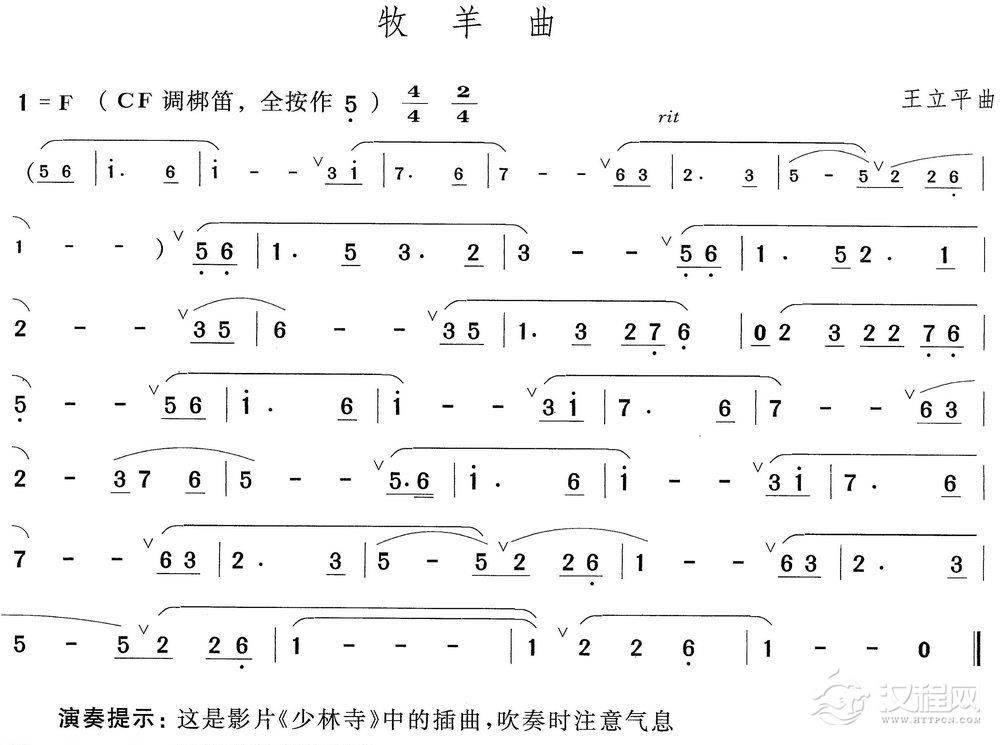 牧羊曲
1 = F （CF 调梆笛，全按作 5̣） 4/4 2/4 王立平曲
rit
( 5 6 | i̇ . 6 | i̇ - - ∨ 3 i̇ | 7 . 6 | 7 - - ∨ 6 3 | 2 . 3 | 5 - 5 ∨ 2 2 6̣ |
1 - - ) ∨ 5̣ 6̣ | 1 . 5 3 . 2 | 3 - - ∨ 5̣ 6̣ | 1 . 5 2 . 1 |
2 - - ∨ 3 5 | 6 - - ∨ 3 5 | 1 . 3 2 7̣ 6̣ | 0 2 3 2 2 7̣ 6̣ |
5̣ - - ∨ 5 6 | i̇ . 6 | i̇ - - ∨ 3 i̇ | 7 . 6 | 7 - - ∨ 6 3 |
2 - 3 7 6 | 5 - - ∨ 5 . 6 | i̇ . 6 | i̇ - - ∨ 3 i̇ | 7 . 6 |
7 - - ∨ 6 3 | 2 . 3 | 5 - 5 ∨ 2 2 6̣ | 1 - - ∨ 6 3 | 2 . 3 |
5 - 5 ∨ 2 2 6̣ | 1 - - - | 1 ∨ 2 2 6̣ | 1 - - 0 ‖
演奏提示：这是影片《少林寺》中的插曲，吹奏时注意气息
汉程网
WWW.HTTPCN.COM